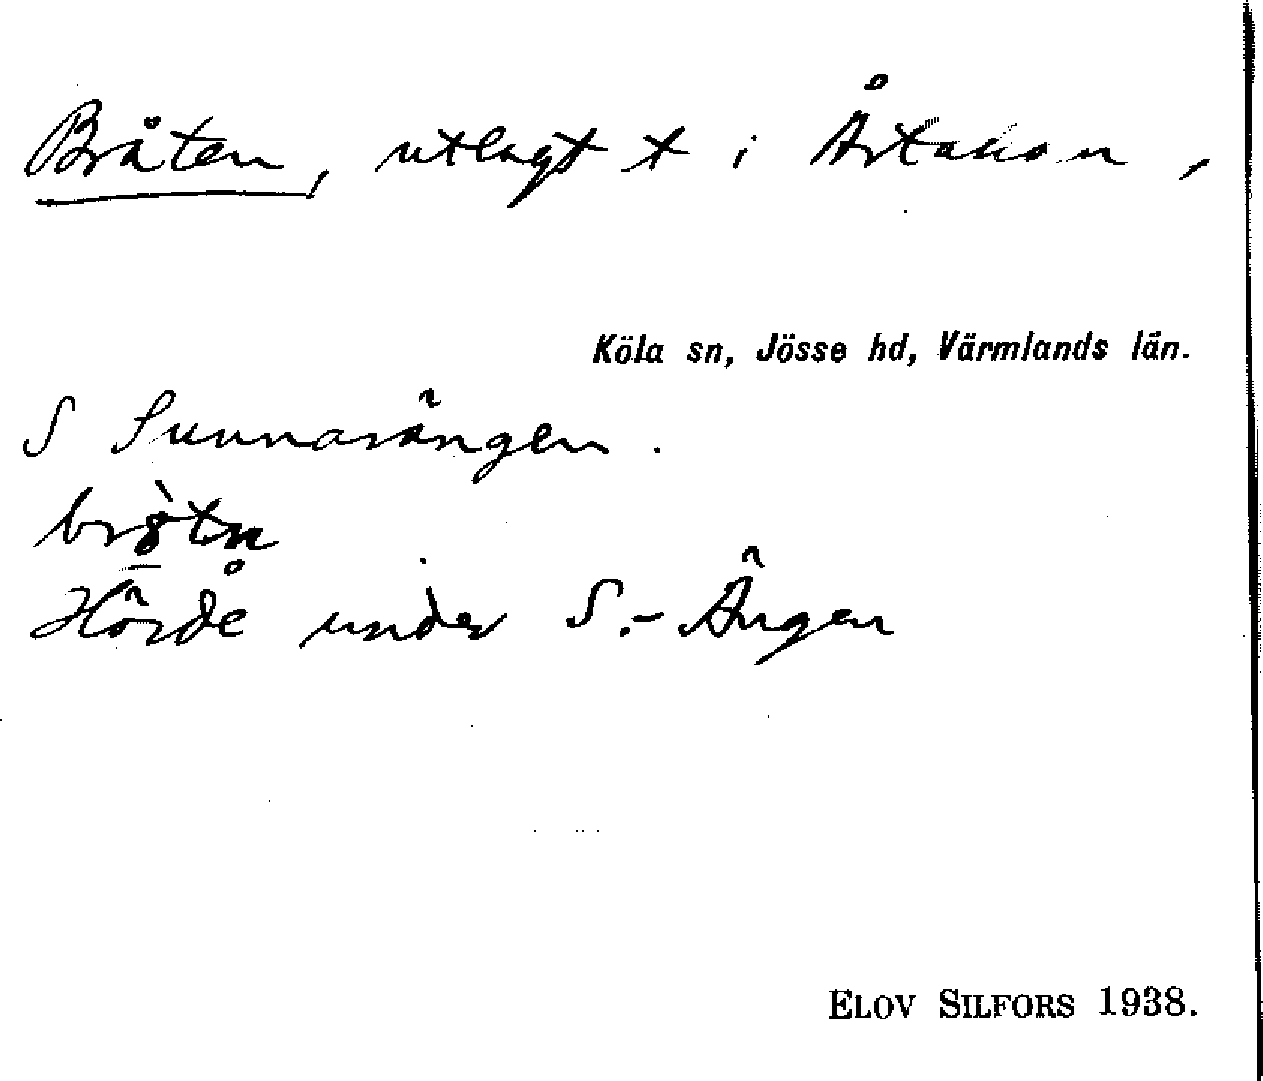 Bråten, utlagt t i Årtakan,
Köla sn, Jösse hd, Värmlands län.
S Sunnarängen.
Hörde under S.-Ängen
ELOV SILFORS 1938.